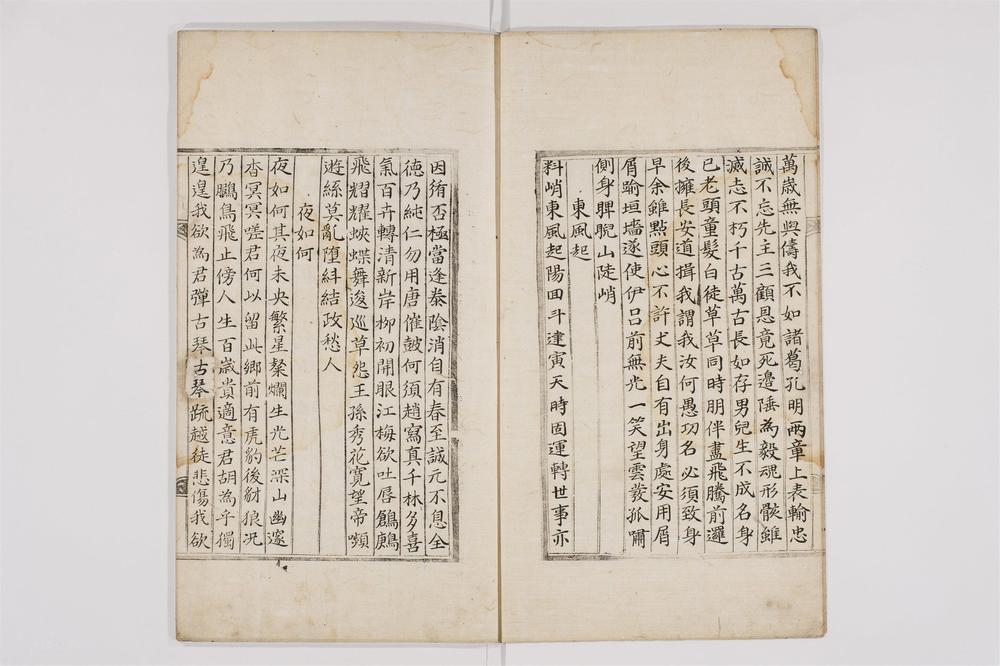 萬歲無與儔我不如諸葛孔明兩章上表輸忠
誠不忘先主三顧恩竟死邊陲為毅魂形骸雖
滅志不朽千古萬古長如存男兒生不成名身
已老頭童髮白徒草草同時朋伴盡飛騰前邏
後擁長安道揖我謂我汝何愚功名必須致身
早余雖點頭心不許丈夫自有出身處安用屑
屑踰垣墻遂使伊呂前無光一笑望雲發孤嘯
側身睥睨山陡峭
東風起
料峭東風起陽回斗建寅天時固運轉世事亦
因循否極當逢泰陰消自有春至誠元不息全
德乃純仁勿用唐催皷何須趙寫真千林多喜
氣百卉轉清新岸柳初開眼江梅欲吐唇鶬鶊
飛耀耀蛺蝶舞逡巡草怨王孫秀花寬望帝嚬
遊絲莫亂墮紏結政愁人
夜如何
夜如何其夜未央繁星粲爛生光芒深山幽邃
杳冥冥嗟君何以留此鄉前有虎豹後豺狼况
乃鵩鳥飛止傍人生百歲貴適意君胡為乎獨
遑遑我欲為君彈古琴古琴疏越徒悲傷我欲